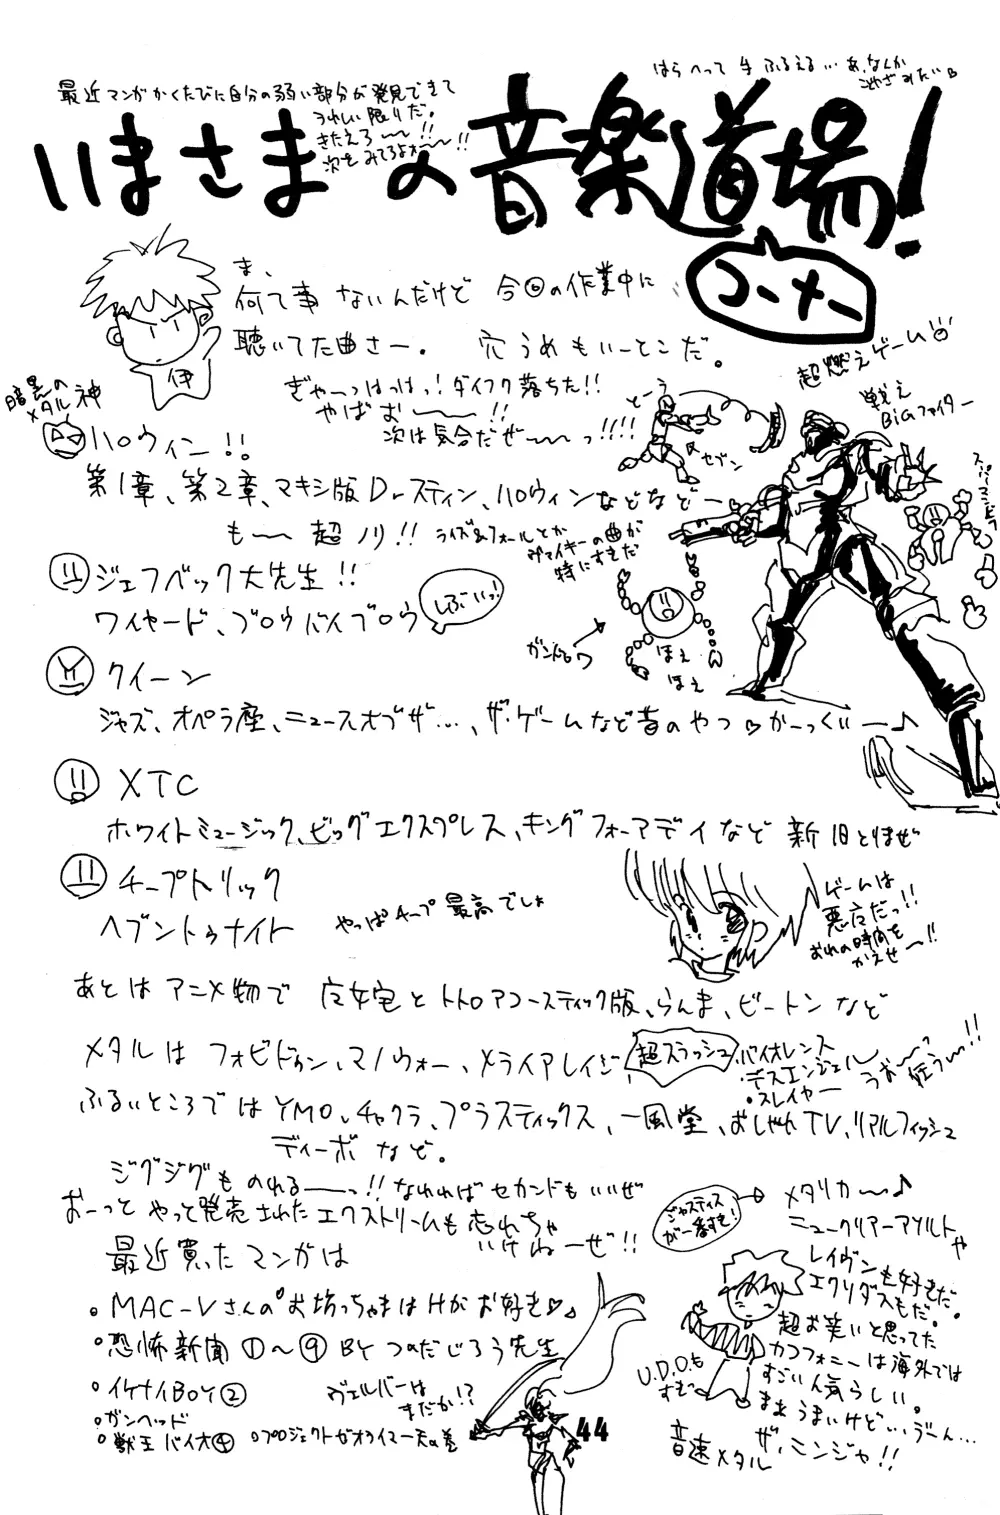 はらへって 手 ふるえる… あ、なんか
こやざみたい
最近マンガかくたびに自分の弱い部分が発見できて
うれしい限りだ。
きたえろ〜〜!!
次をみてろよォ〜〜!!
いまさまの音楽道場!
コーナー
ま、
何て事ないんだけど 今回の作業中に
聴いてた曲さー。 穴うめもいーとこだ。
伊
ぎゃーっはっはっ!ダイフク落ちた!!
やばお〜〜!!
次は気合だぜ〜〜っ!!!!
超燃えゲーム
戦え
BiGファイター
とーう
セブン
暗黒の
メタル神
ハロウィン!!
第1章、第2章、マキシ版Dr.スティン、ハロウィンなどなどー
も〜〜 超ノリ!! ライズ&フォールとか
ヴァイキーの曲が
特にすきだ
ジェフベック大先生!!
ワイヤード、ブロウバイブロウ
しぶいっ!
ガントロワ
ほえ
ほえ
クイーン
ジャズ、オペラ座、ニュースオブザ…、ザ・ゲームなど昔のやつ♡かーっくいー♪
XTC
ホワイトミュージック、ビッグエクスプレス、キングフォーアデイなど 新旧とりまぜ
チープトリック
ヘブントゥナイト
やっぱチープ最高でしょ
ゲームは
悪魔だっ!!
おれの時間を
かえせ〜!!
あとは アニメ物で 魔女宅とトトロアコースティック版、らんま、ビートン など
メタルは フォビドゥン、マノウォー、メタライアレイジ
超スラッシュ
・バイオレンス
・デスエンジェル
・スレイヤー
うお〜〜っ
狂う〜!!
ふるいところでは YMO、チャクラ、プラスティックス、一風堂、おしゃれTV、リアルフィッシュ
ディーボ など。
ジグジグも のれる〜〜っ!! なれればセカンドもいいぜ
おーっと やっと発売されたエクストリームも忘れちゃ
いけねーぜ!!
ジャスティス
が一番すき!
メタリカ〜♪
ニュークリアーアソルトや
レイヴンも好きだ。
エクソダスもだ。
超お笑いと思ってた
カコフォニーは海外では
すごい人気らしい。
まぁ うまいけど… うーん…
ザ・ニンジャ!!
U.D.O.も
すむ
音速メタル
最近買ったマンガは
・MAC-Vさんの"お坊っちゃまはHがお好き♡"
・恐怖新聞①〜⑨ BY つのだじろう先生
・イケナイBOY②
・ガンヘッド
・獣王バイオ④ ・プロジェクトゼオライマー天の巻
ヴェルバーは
まだか!?
44